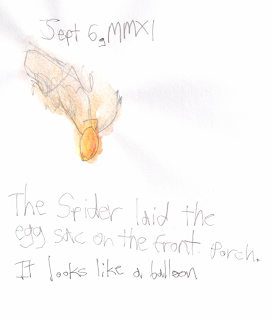 Sept 6, MMXI
The Spider laid the
egg sac on the front porch.
It looks like a balloon